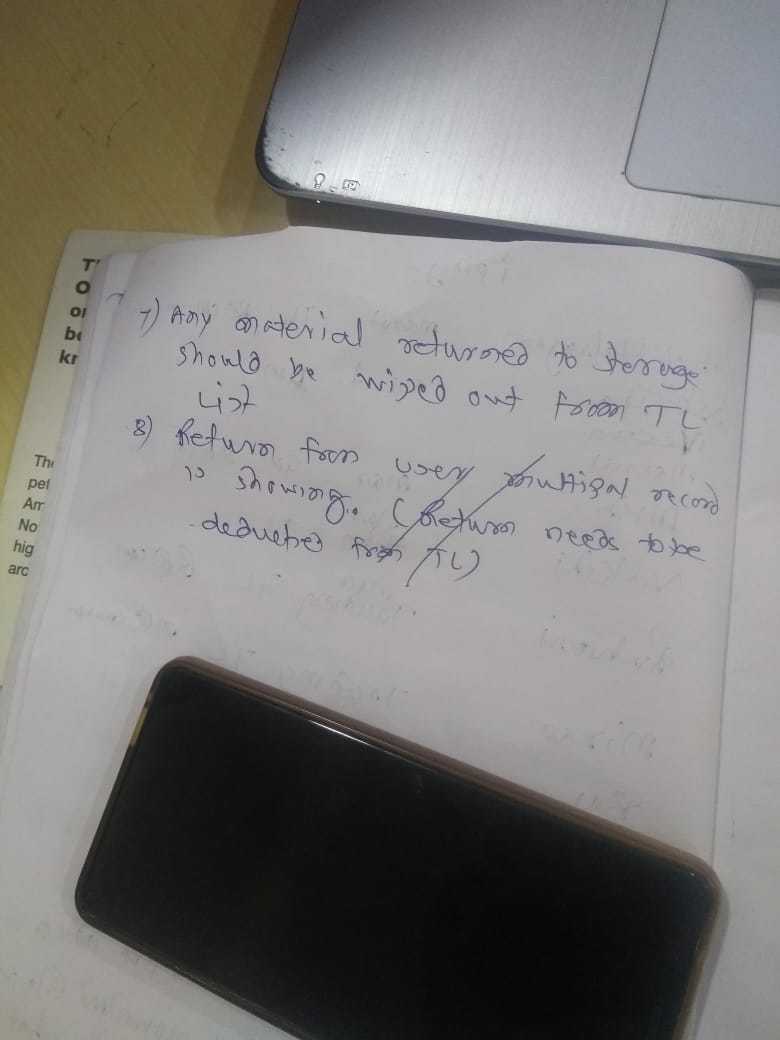 T
O
or
be
kr
The
pet
Am
No
hig
arc
7) Any material returned to sterage
should be wiped out from TL
List
8) Return from user multipal record
is showing. (Return needs to be
deducted from TL)